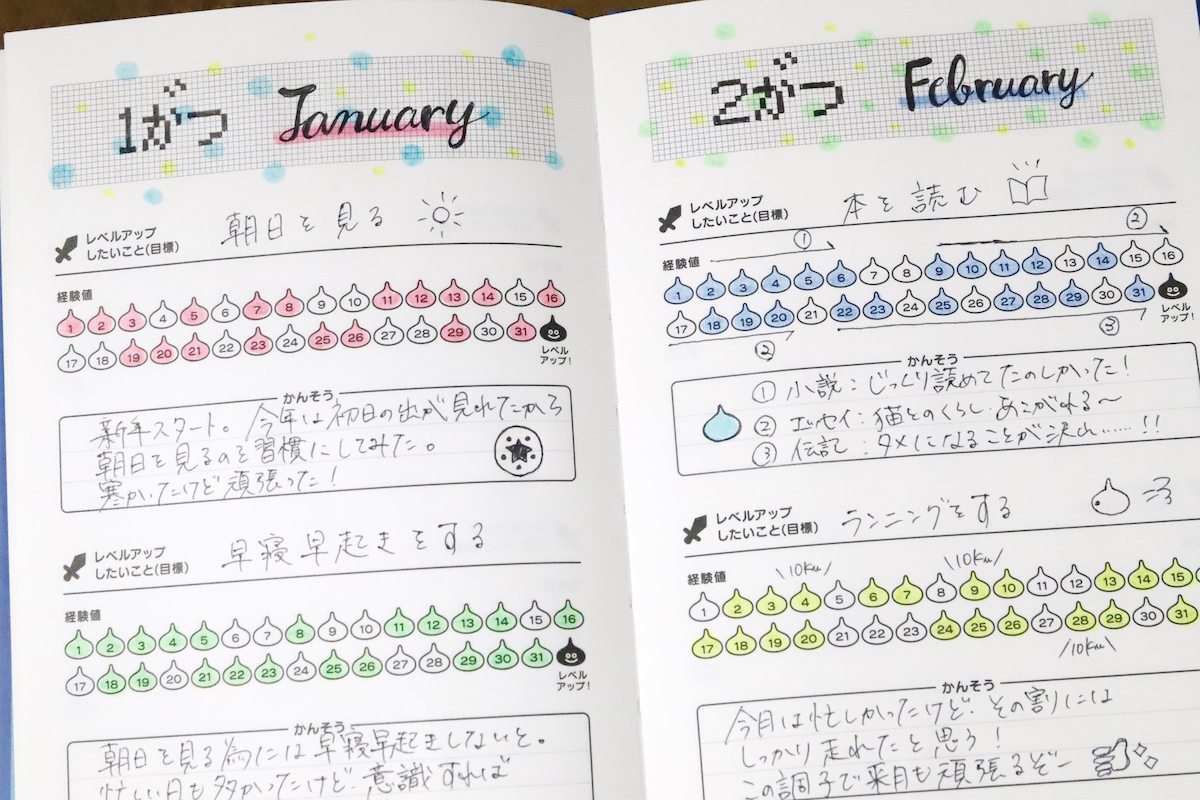 1がつ January
レベルアップ
したいこと(目標)
朝日を見る
経験値
1 2 3 4 5 6 7 8 9 10 11 12 13 14 15 16
17 18 19 20 21 22 23 24 25 26 27 28 29 30 31
レベル
アップ!
かんそう
新年スタート。今年は初日の出が見れたから
朝日を見るのを習慣にしてみた。
寒かったけど頑張った!
レベルアップ
したいこと(目標)
早寝早起きをする
経験値
1 2 3 4 5 6 7 8 9 10 11 12 13 14 15 16
17 18 19 20 21 22 23 24 25 26 27 28 29 30 31
レベル
アップ!
かんそう
朝日を見る為には早寝早起きしないと。
忙しい日も多かったけど、意識すれば
2がつ February
レベルアップ
したいこと(目標)
本を読む
① ②
経験値
1 2 3 4 5 6 7 8 9 10 11 12 13 14 15 16
17 18 19 20 21 22 23 24 25 26 27 28 29 30 31
レベル
アップ!
② ③
かんそう
① 小説:じっくり読めてたのしかった!
② エッセイ:猫とのくらし、あこがれる〜
③ 伝記:タメになることが沢山……!!
レベルアップ
したいこと(目標)
ランニングをする
10km 10km
経験値
1 2 3 4 5 6 7 8 9 10 11 12 13 14 15
17 18 19 20 21 22 23 24 25 26 27 28 29 30 31
10km
かんそう
今月は忙しかったけど、その割には
しっかり走れたと思う!
この調子で来月も頑張るぞー